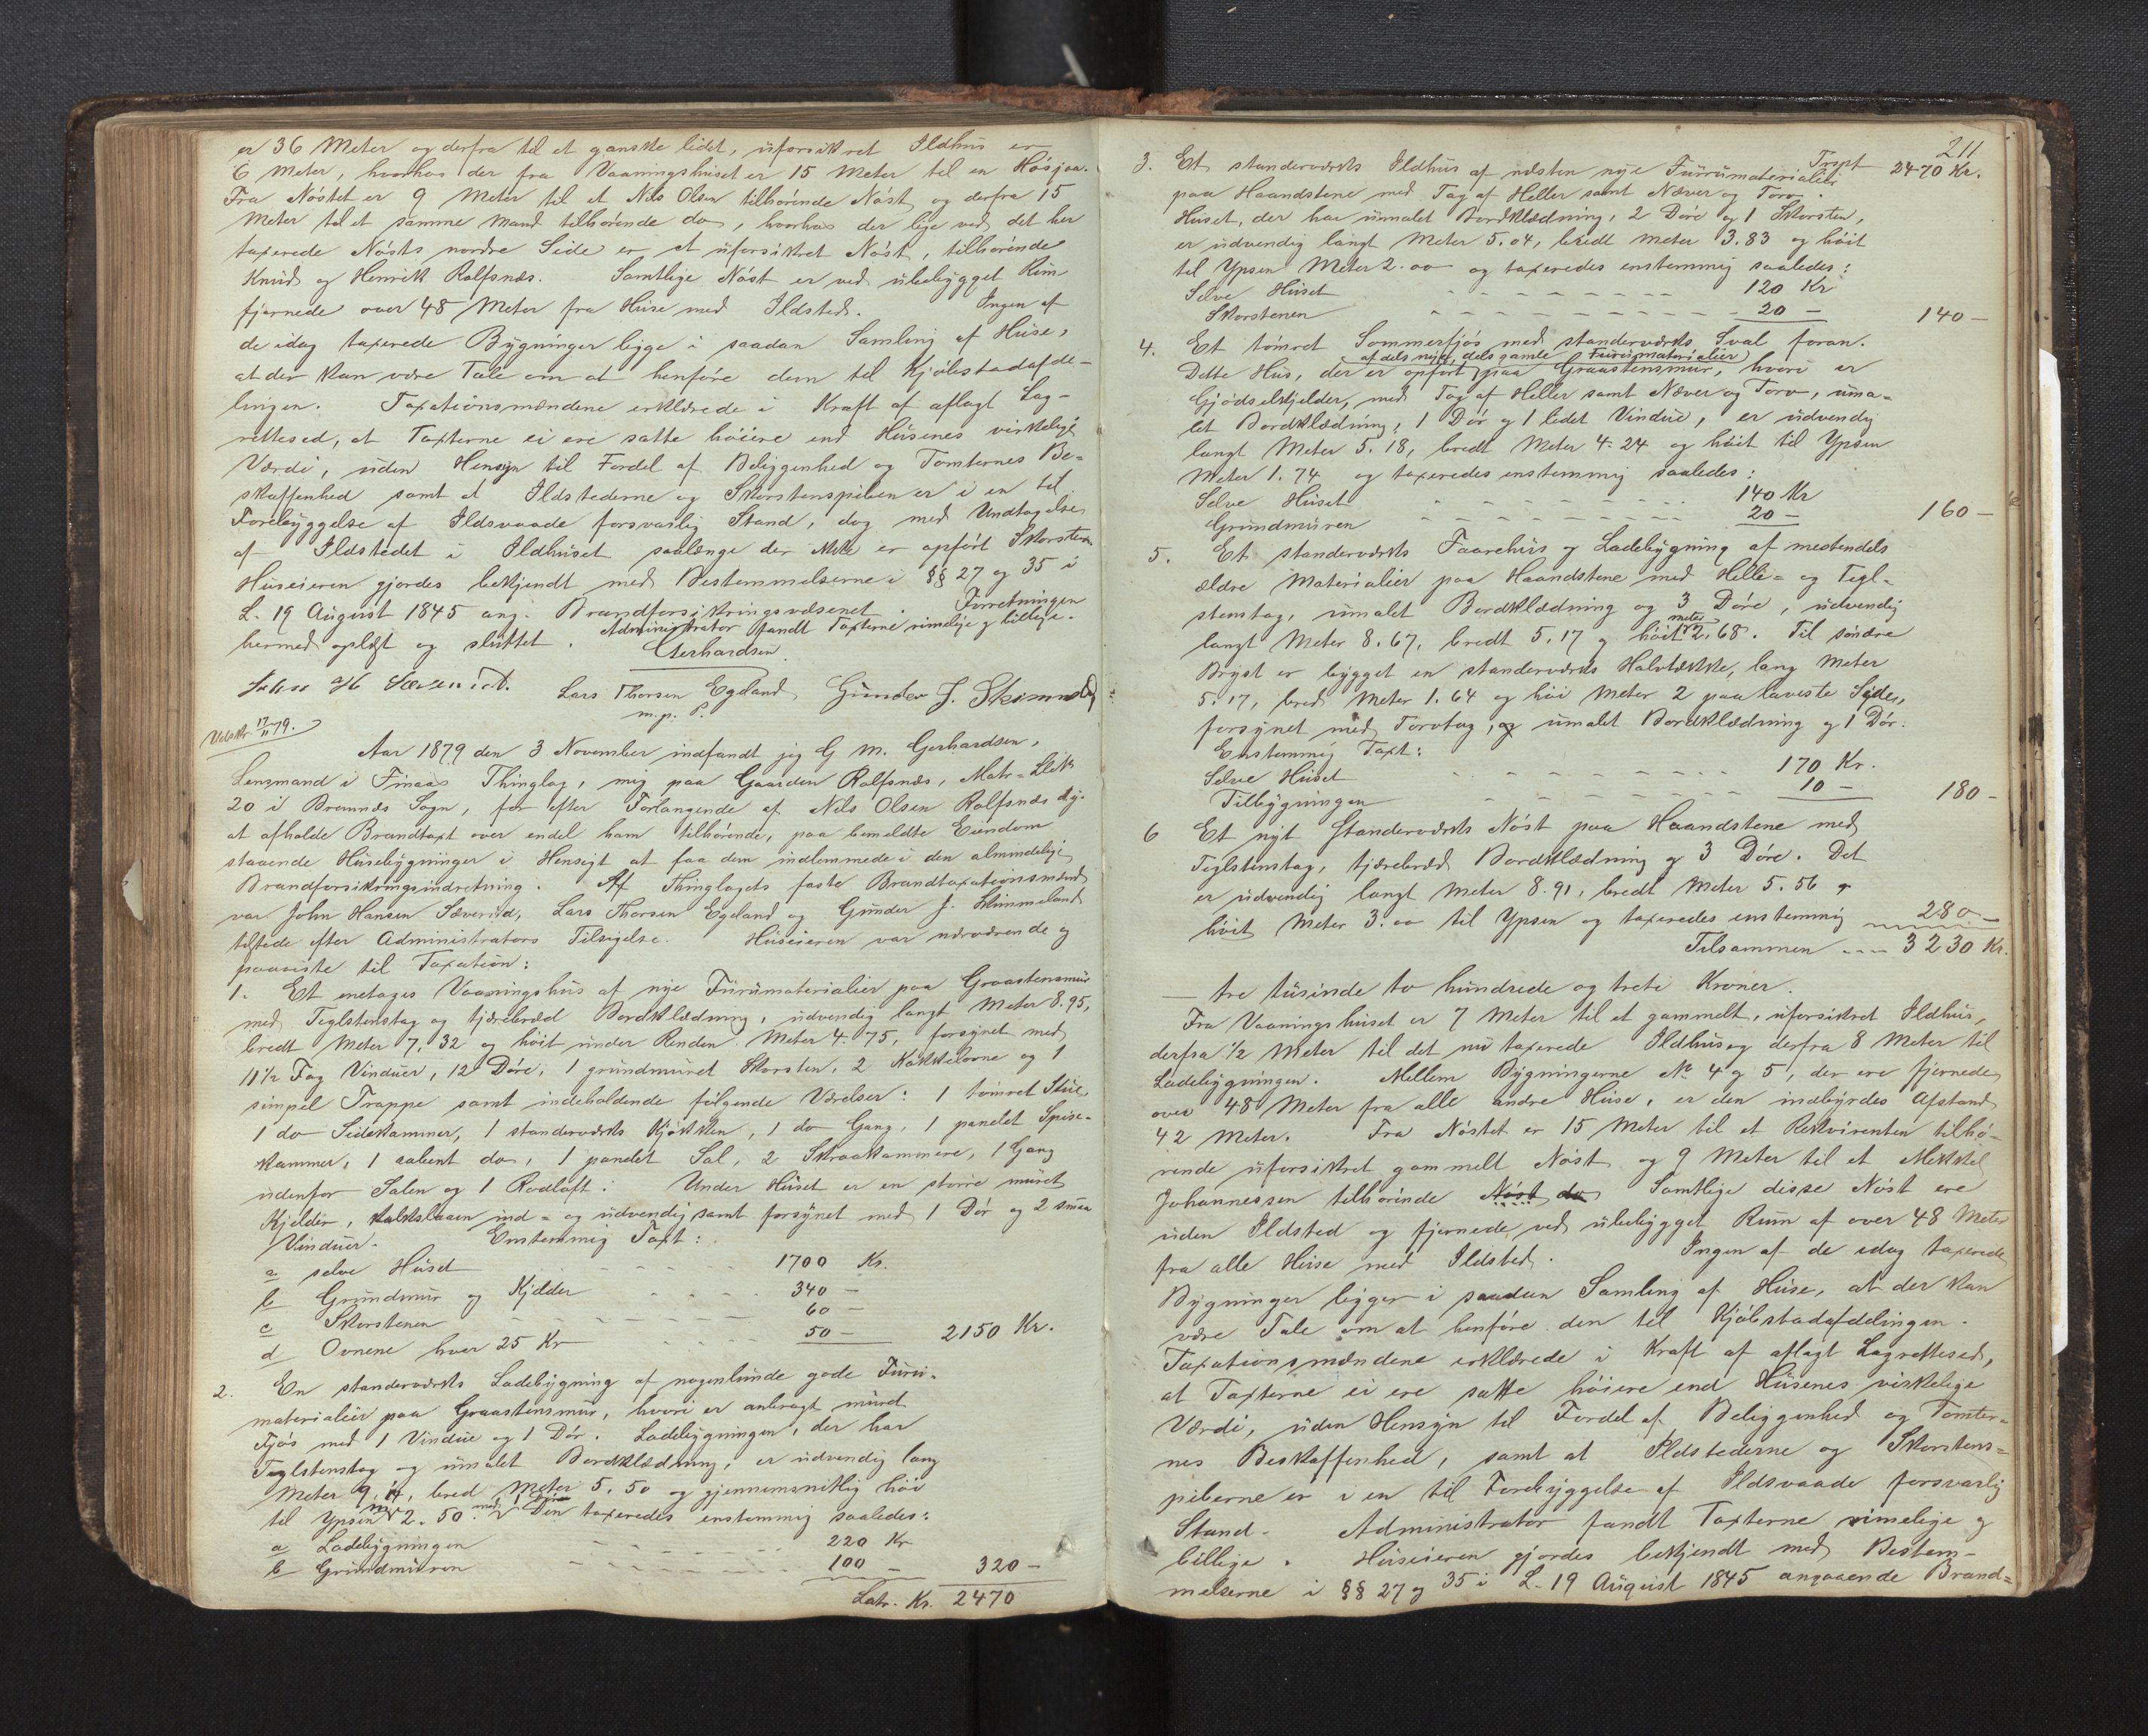 er 36 Meter og derfra til et ganske lidet, uforsikret Ildhus er
6 Meter, hvorhos der fra Vaaningshuset er 15 Meter til en Høsjaa.
Fra Nøstet er 9 Meter til et Nils Olsen tilhørende Nøst og derfra 15
Meter til et samme Mand tilhørende do, hvorhos der lige ved det her
taxerede Nøsts nordre Side er et uforsikret Nøst, tilhørende
Knud og Henrik Rolfsnæs. Samtlige Nøst er ved ubebygget Rum
fjernede over 48 Meter fra Huse med Ildsted. Ingen af
de idag taxerede Bygninger ligge i saadan Samling af Huse,
at der kan være Tale om at henføre dem til Kjøbstadafde-
lingen. Taxationsmændene erklærede i Kraft af aflagt Lag-
rettesed, at Taxterne ei ere satte høiere end Husenes virkelige
Værdi, uden Hensyn til Fordel af Beliggenhed og Tomternes Be-
skaffenhed samt at Ildstederne og Skorstenspiben er i en til
Forebyggelse af Ildsvaade forsvarlig Stand, dog med Undtagelse
af Ildstedet i Ildhuset saalænge der ikke er opført Skorsten
Huseieren gjordes bekjendt med Bestemmelserne i §§ 27 og 35 i
L. 19 August 1845 ang. Brandforsikringsvæsenet. Forretningen
Administrator fandt Taxterne rimelige og billige.
hermed oplæst og sluttet. Gerhardsen
Lars Thorsen Egeland Gunder J. Skimmeland
m. p. P.
Udskr. 17/11 79.
Aar 1879 den 3 November indfandt jeg G M. Gerhardsen,
Lensmand i Finaas Thinglag, mig paa Gaarden Rolfsnæs, Matr-Løb.
20 i Bremnæs Sogn, for efter Forlangende af Nils Olsen Rolfsnæs
at afholde Brandtaxt over endel ham tilhørende, paa bemeldte Eiendom
staaende Husebygninger i Hensigt at faa dem indlemmede i den almindelige
Brandforsikringsindretning. Af Thinglagets faste Brandtaxationsmænd
var John Hansen Sæverud, Lars Thorsen Egeland og Gunder J. Skimmeland
tilstede efter Administrators Tilsigelse. Huseieren var nærværende og
paaviste til Taxation:
1. Et enetages Vaaningshus af nye Furumaterialier paa Graastensmur
med Teglstenstag og tjærebræd Bordklædning, udvendig langt Meter 8.95,
bredt Meter 7.32 og høit under Renden Meter 4.75, forsynet med
11½ Fag Vinduer, 12 Døre, 1 grundmuret Skorsten, 2 Kakkelovne og 1
simpel Trappe samt indeholdende følgende Værelser: 1 tømret Stue,
1 do Sidekammer, 1 standerværks Kjøkken, 1 do Gang, 1 panelet Spise-
kammer, 1 aabent do, 1 panelet Sal, 2 Skraakammere, 1 Gang
udenfor Salen og 1 Rodloft. Under Huset er en større muret
Kjelder, kalkslagen ind- og udvendig samt forsynet med 1 Dør og 2 smaa
Vinduer. Enstemmig Taxt:
a selve Huset 1700 Kr.
b Grundmur og Kjelder 340 -
c Skorstenen 60 -
d Ovnene hver 25 Kr 50 - 2150 Kr.
2. En standerværks Ladebygning af nogenlunde gode Furu-
materialier paa Graastensmur, hvori er anbragt muret
Fjøs med 1 Vindue og 1 Dør. Ladebygningen, der har
Teglstenstag og umalet Bordklædning, er udvendig lang
Meter 9.14, bred Meter 5.50 og gjennemsnitlig høi
til Ypsen 2.50. Den taxeredes enstemmig saaledes:
a Ladebygningen 220 Kr
b Grundmuren 100 - 320 -
Latr. Kr. 2470
211
Trspt 2470 Kr.
3. Et standerværks Ildhus af næsten nye Furumaterialier
paa Haandstene med Tag af Heller samt Næver og Torv.
Huset, der har umalet Bordklædning, 2 Døre og 1 Skorsten,
er udvendig langt Meter 5.04, bredt Meter 3.83 og høit
til Ypsen Meter 2.00 og taxeredes enstemmig saaledes:
Selve Huset 120 Kr
Skorstenen 20 - 140 -
4. Et tømret Sommerfjøs med standerværks Sval foran.
af dels nye, dels gamle Furumaterialier
Dette Hus, der er opført paa Graastensmur, hvori er
Gjødselkjelder, med Tag af Heller samt Næver og Torv, uma-
let Bordklædning, 1 Dør og 1 lidet Vindue, er udvendig
langt Meter 5.18, bredt Meter 4.24 og høit til Ypsen
Meter 1.74 og taxeredes enstemmig saaledes:
Selve Huset 140 Kr
Grundmuren 20 - 160 -
5. Et standerværks Faarehus og Ladebygning af mestendels
ældre Materialier paa Haandstene med Helle- og Tegl-
stenstag, umalet Bordklædning og 3 Døre, udvendig
langt Meter 8.67, bredt 5.17 og høit Meter 2.68. Til søndre
Bryst er bygget en standerværks Halvtække, lang Meter
5.17, bred Meter 1.64 og høi Meter 2 paa laveste Side,
forsynet med Torvtag, og umalet Bordklædning og 1 Dør.
Enstemmig Taxt:
Selve Huset 170 Kr.
Tilbygningen 10 - 180 -
6 Et nyt Standerværks Nøst paa Haandstene med
Teglstenstag, tjærebræd Bordklædning og 3 Døre. Det
er udvendig langt Meter 8.91, bredt Meter 5.56 og
høit Meter 3.00 til Ypsen og taxeredes enstemmig 280 -
Tilsammen ---- 3230 Kr.
— tre tusinde to hundrede og treti Kroner.
Fra Vaaningshuset er 7 Meter til et gammelt, uforsikret Ildhus,
derfra ½ Meter til det nu taxerede Ildhus og derfra 8 Meter til
Ladebygningen. Mellem Bygningerne No 4 og 5, der ere fjernede
over 48 Meter fra alle andre Huse, er den indbyrdes Afstand
42 Meter. Fra Nøstet er 15 Meter til et Rekvirenten tilhø-
rende uforsikret gammelt Nøst og 9 Meter til et Mikkel
Johannessen tilhørende Nøst do Samtlige disse Nøst ere
uden Ildsted og fjernede ved ubebygget Rum af over 48 Meter
fra alle Huse med Ildsted. Ingen af de idag taxerede
Bygninger ligger i saadan Samling af Huse, at der kan
være Tale om at henføre den til Kjøbstadafdelingen.
Taxationsmændene erklærede i Kraft af aflagt Lagrettesed,
at Taxterne ei ere satte høiere end Husenes virkelige
Værdi, uden Hensyn til Fordel af Beliggenhed og Tomter-
nes Beskaffenhed, samt at Ildstederne og Skorstens-
piberne er i en til Forebyggelse af Ildsvaade forsvarlig
Stand. Administrator fandt Taxterne rimelige og
billige. Huseieren gjordes bekjendt med Bestem-
melserne i §§ 27 og 35 i L. 19 August 1845 angaaende Brand-